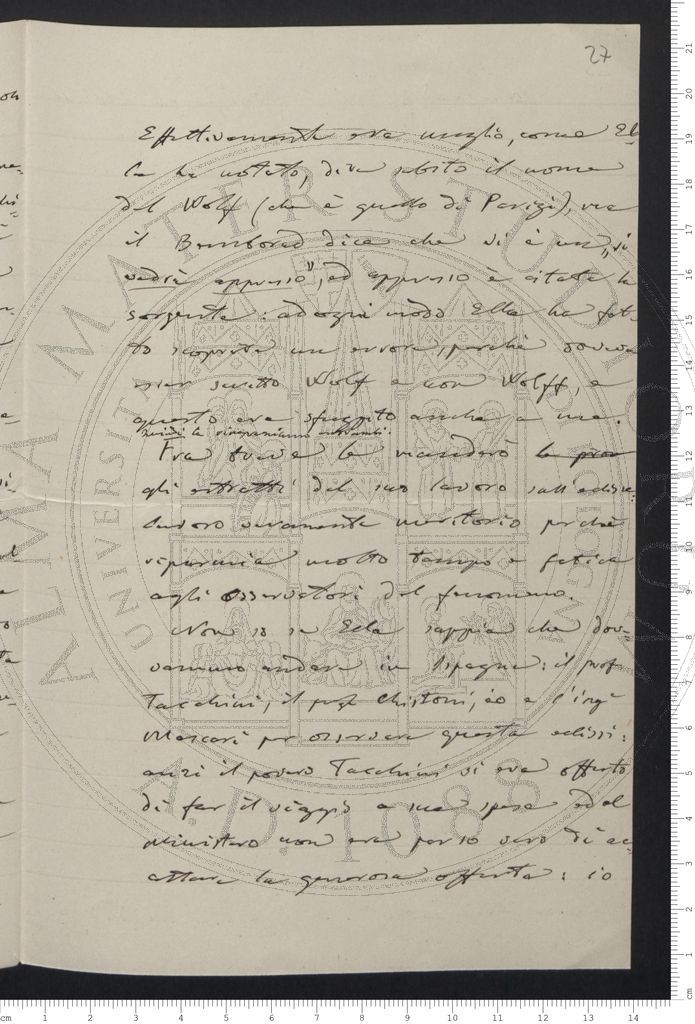 27
Effettivamente era meglio, come El-
la ha notato, dire subito il nome
del Wolf (che è quello di Parigi), ma
il Bemborad dice che vi è un „si
vedrà appresso”, ed appresso è citata la
sorgente: ad ogni modo Ella ha fat-
to scoprire un errore, perchè doveva
esser scritto Wolf e non Wolff, e
questo era sfuggito anche a me.
Quindi la ringraziamo entrambi.
Fra breve le manderò
gli estratti del suo lavoro sull'eclisse
lavoro veramente meritorio perchè
risparmia molto tempo e fatica
agli osservatori del fenomeno.
Non so se Ella sappia che dov-
evamo andare in Ispagna: il prof
Tacchini, il prof Chistoni, io e l'ing.
Mascari per osservare questa eclissi:
anzi il povero Tacchini si era offerto
di far il viaggio a sua spesa ed al
Ministero non era parso vero di ac-
cettare la generosa offerta: io
ALMA MATER STUDIORUM
UNIVERSITÀ DI BOLOGNA
A.D. 1088